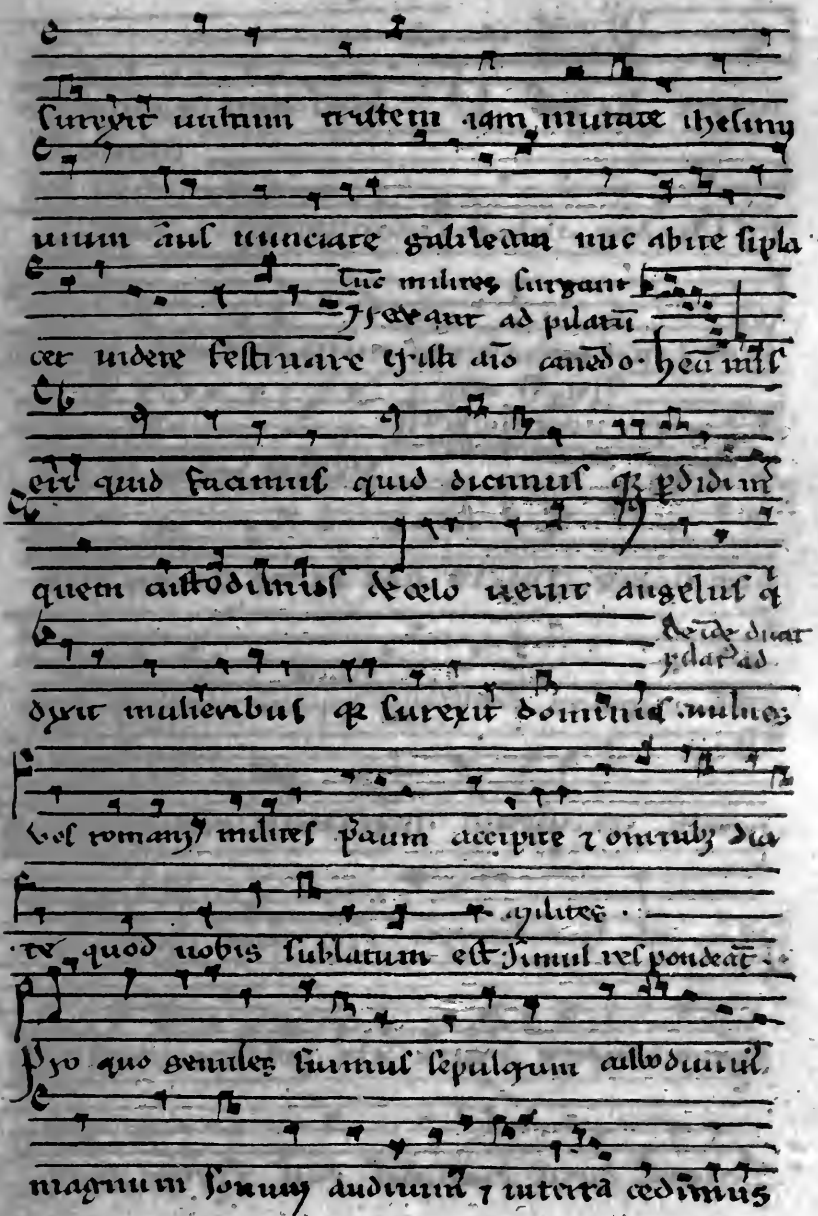 surexit uultum tristem iam mutate ihesum
uiuum aīus nunciate galileam nūc abite si pla
Tūc milites surgant
cet uidere festinare tristi aīo canēdo. heū mīs
& uad ant ad pilatū
erī quid facimus quid dicimus qꝛ ꝑdidim᷒
quem custodimus de celo uenit angelus q̄
deīde dicat
pilat᷒ ad
dixit mulieribus qꝛ surexit dominus milites
Vos romani milites p̄cium accipite ⁊ omnibꝫ dici
te quod uobis sublatum est Simul respondeāt
milites.
Pro quo gentiles fuimus sepulcrum custodiuim᷒
magnum sonum audiuim᷒ ⁊ in terrā cedimus